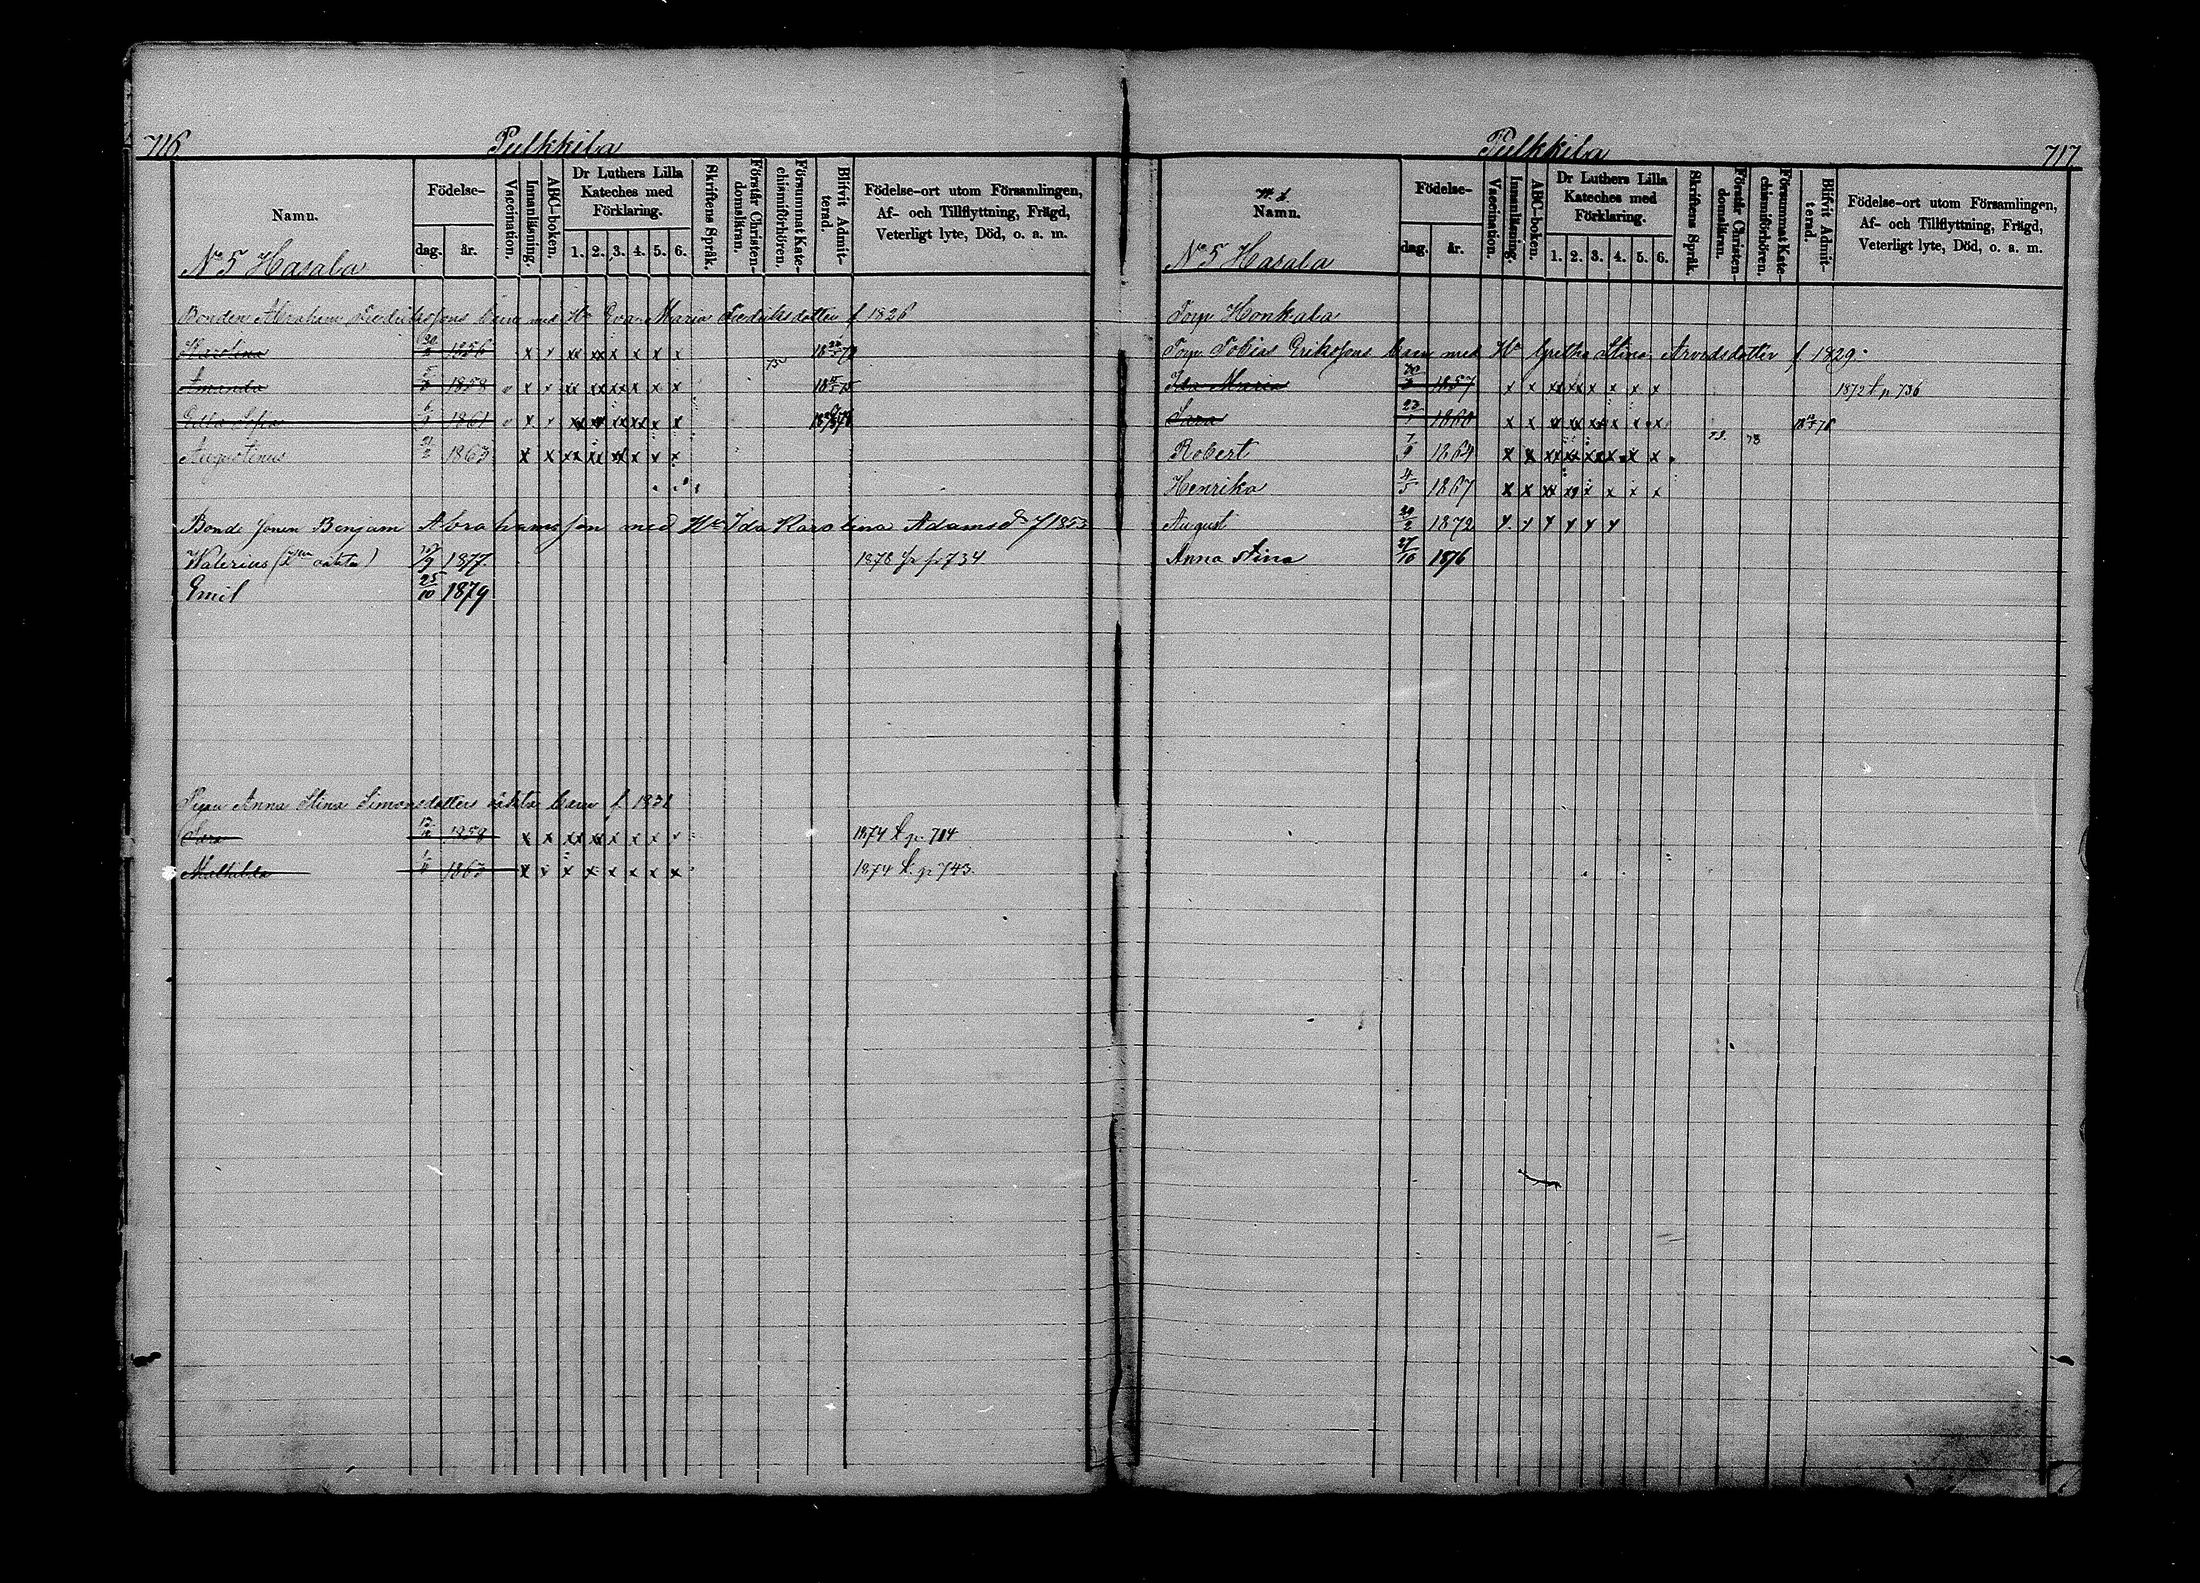 716 Pulkkila
Namn. Födelse- dag. år. Vaccination. Innanläsning. ABC-boken. Dr Luthers Lilla Kateches med Förklaring. 1. 2. 3. 4. 5. 6. Skriftens Språk. Förstår Christendomsläran. Försummat Katechismiförhören. Blifvit Admitterad. Födelse-ort utom Församlingen, Af- och Tillflyttning, Frägd, Veterligt lyte, Död, o. a. m.
No 5 Hasala
Bonden Abraham Fredriksons barn med Hu Eva Maria Fredriksdotter f 1826
Karolina 1856 x x xx xx x x x x
Amanda 1858 x x xx xx xx x x x
Edla Sofia 1861
Augustinus 1863 x x xx xx xx x x x
Bonde sonen Benjam Abrahamsson med Hu Ida Karolina Adamsdr f 1853
Walerius 1877 1878 fr p 734
Emil 25/10 1879
Pigan Anna Stina Simonsdotters oäkta barn f 1831
Sara 1858 x x xx xx x x x 1874 t. p. 714
Mathilda 1863 x x x x x x x 1874 t. p 743.
Pulkkila 717
Namn. Födelse- dag. år. Vaccination. Innanläsning. ABC-boken. Dr Luthers Lilla Kateches med Förklaring. 1. 2. 3. 4. 5. 6. Skriftens Språk. Förstår Christendomsläran. Försummat Katechismiförhören. Blifvit Admitterad. Födelse-ort utom Församlingen, Af- och Tillflyttning, Frägd, Veterligt lyte, Död, o. a. m.
No 5 Hasala
Torp Honkala
Torp. Tobias Eriksons barn med Hu Gretha Stina Arvedsdotter f 1829.
Ida Maria 1857 x x xx xx x x x x 1872 t p 736
Sara 1860 x x xx xx xx x x x
Robert 7/9 1864 x x xx xx xx x x x 73. 78
Henrika 4/5 1867 x x xx x x x x x
August 29/2 1872 x x x x x x
Anna Stina 27/10 1876